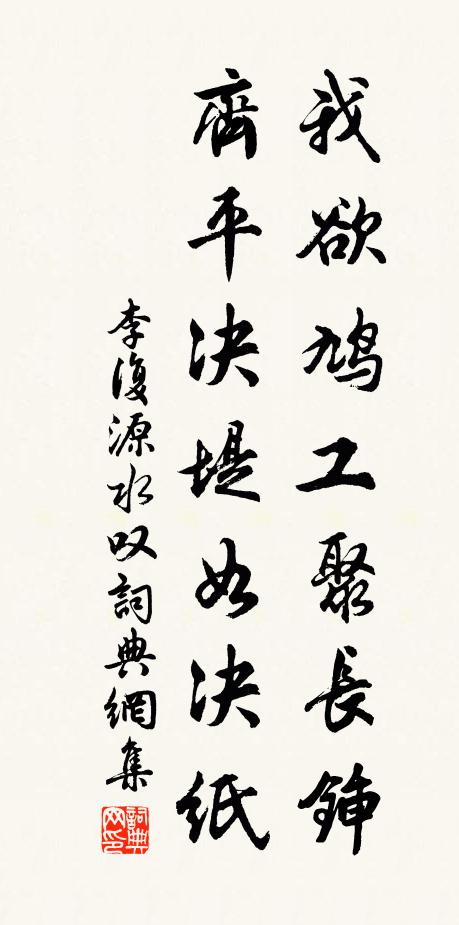 我欲鸠工聚長鍤
齊平决堤如决紙
李復源水叹詞典網集
詞典网印